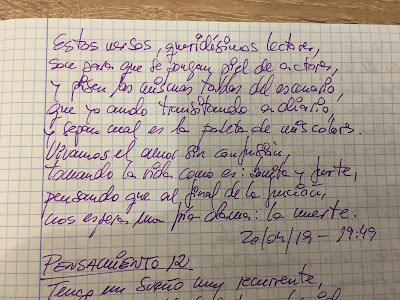 Estos versos, queridísimos lectores,
son para que se pongan piel de actores,
y pisen las mismas tablas del escenario,
que yo ando transitando a diario,
y sepan cual es la paleta de mis colores.
Vivamos el amor sin confusión,
tomando la vida como es: y fuerte,
pensando que al final de la función,
nos espera una fría dama: la muerte.
20/04/19 - 19:49
PENSAMIENTO 12
Tengo un sueño muy recurrente,